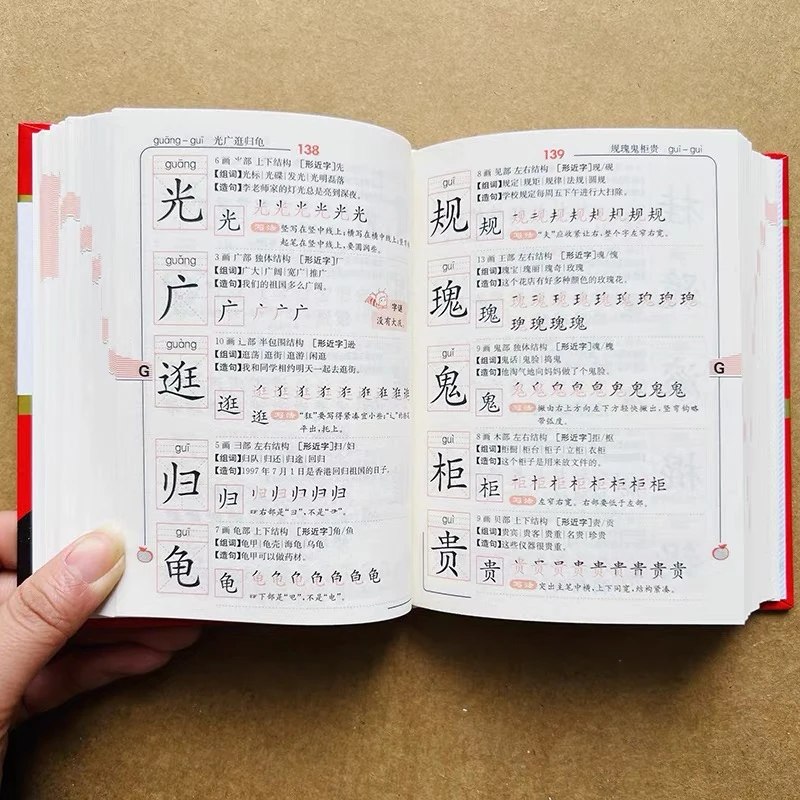 guāng－guī 光广逛归龟 138
guāng
光
6画 ⺌部 上下结构 [形近字]先
[组词]光标|光碟|发光|光明磊落
[造句]李老师家的灯光总是亮到深夜。
光
写法 竖写在竖中线上；横写在横中线上；
起笔在竖中线上，要圆润些。
guǎng
广
3画 广部 独体结构 [形近字]厂
[组词]广大|广阔|宽广|推广
[造句]我们的祖国多么广阔。
广
字谜
没有大厦。
guàng
逛
10画 辶部 半包围结构 [形近字]逊
[组词]逛荡|逛街|逛游|闲逛
[造句]我和同学相约明天一起去逛街。
逛
写法 “狂”要写得紧凑窄小些；“辶”的
平出，托上。
guī
归
5画 彐部 左右结构 [形近字]扫/妇
[组词]归队|归还|归途|回归
[造句]1997年7月1日是香港回归祖国的日子。
归
右部是“彐”，不是“彑”。
guī
龟
7画 龟部 上下结构 [形近字]角/鱼
[组词]龟甲|龟壳|海龟|乌龟
[造句]龟甲可以做药材。
龟
下部是“电”，不是“电”。
G
139 规瑰鬼柜贵 guī－guì
guī
规
8画 见部 左右结构 [形近字]现/观
[组词]规定|规矩|规律|法规|圆规
[造句]学校规定每周五下午进行大扫除。
规
写法 “夫”应收紧让右，整个字左窄右宽。
guī
瑰
13画 王部 左右结构 [形近字]魂/愧
[组词]瑰宝|瑰丽|瑰奇|玫瑰
[造句]这个花店有好多种颜色的玫瑰花。
瑰
guǐ
鬼
9画 鬼部 独体结构 [形近字]魂/槐
[组词]鬼话|鬼脸|捣鬼
[造句]他淘气地向妈妈做了个鬼脸。
鬼
写法 撇由右上方向左下方轻快撇出，竖弯钩略
带弧度。
guì
柜
8画 木部 左右结构 [形近字]拒/枢
[组词]柜橱|柜台|柜子|立柜|衣柜
[造句]这个柜子是用来放文件的。
柜
写法 左窄右宽。右部要低于左部。
guì
贵
9画 贝部 上下结构 [形近字]责/贡
[组词]贵宾|贵客|贵重|名贵|珍贵
[造句]这些仪器很贵重。
贵
写法 突出主笔中横，上下同宽，结构紧凑。
G